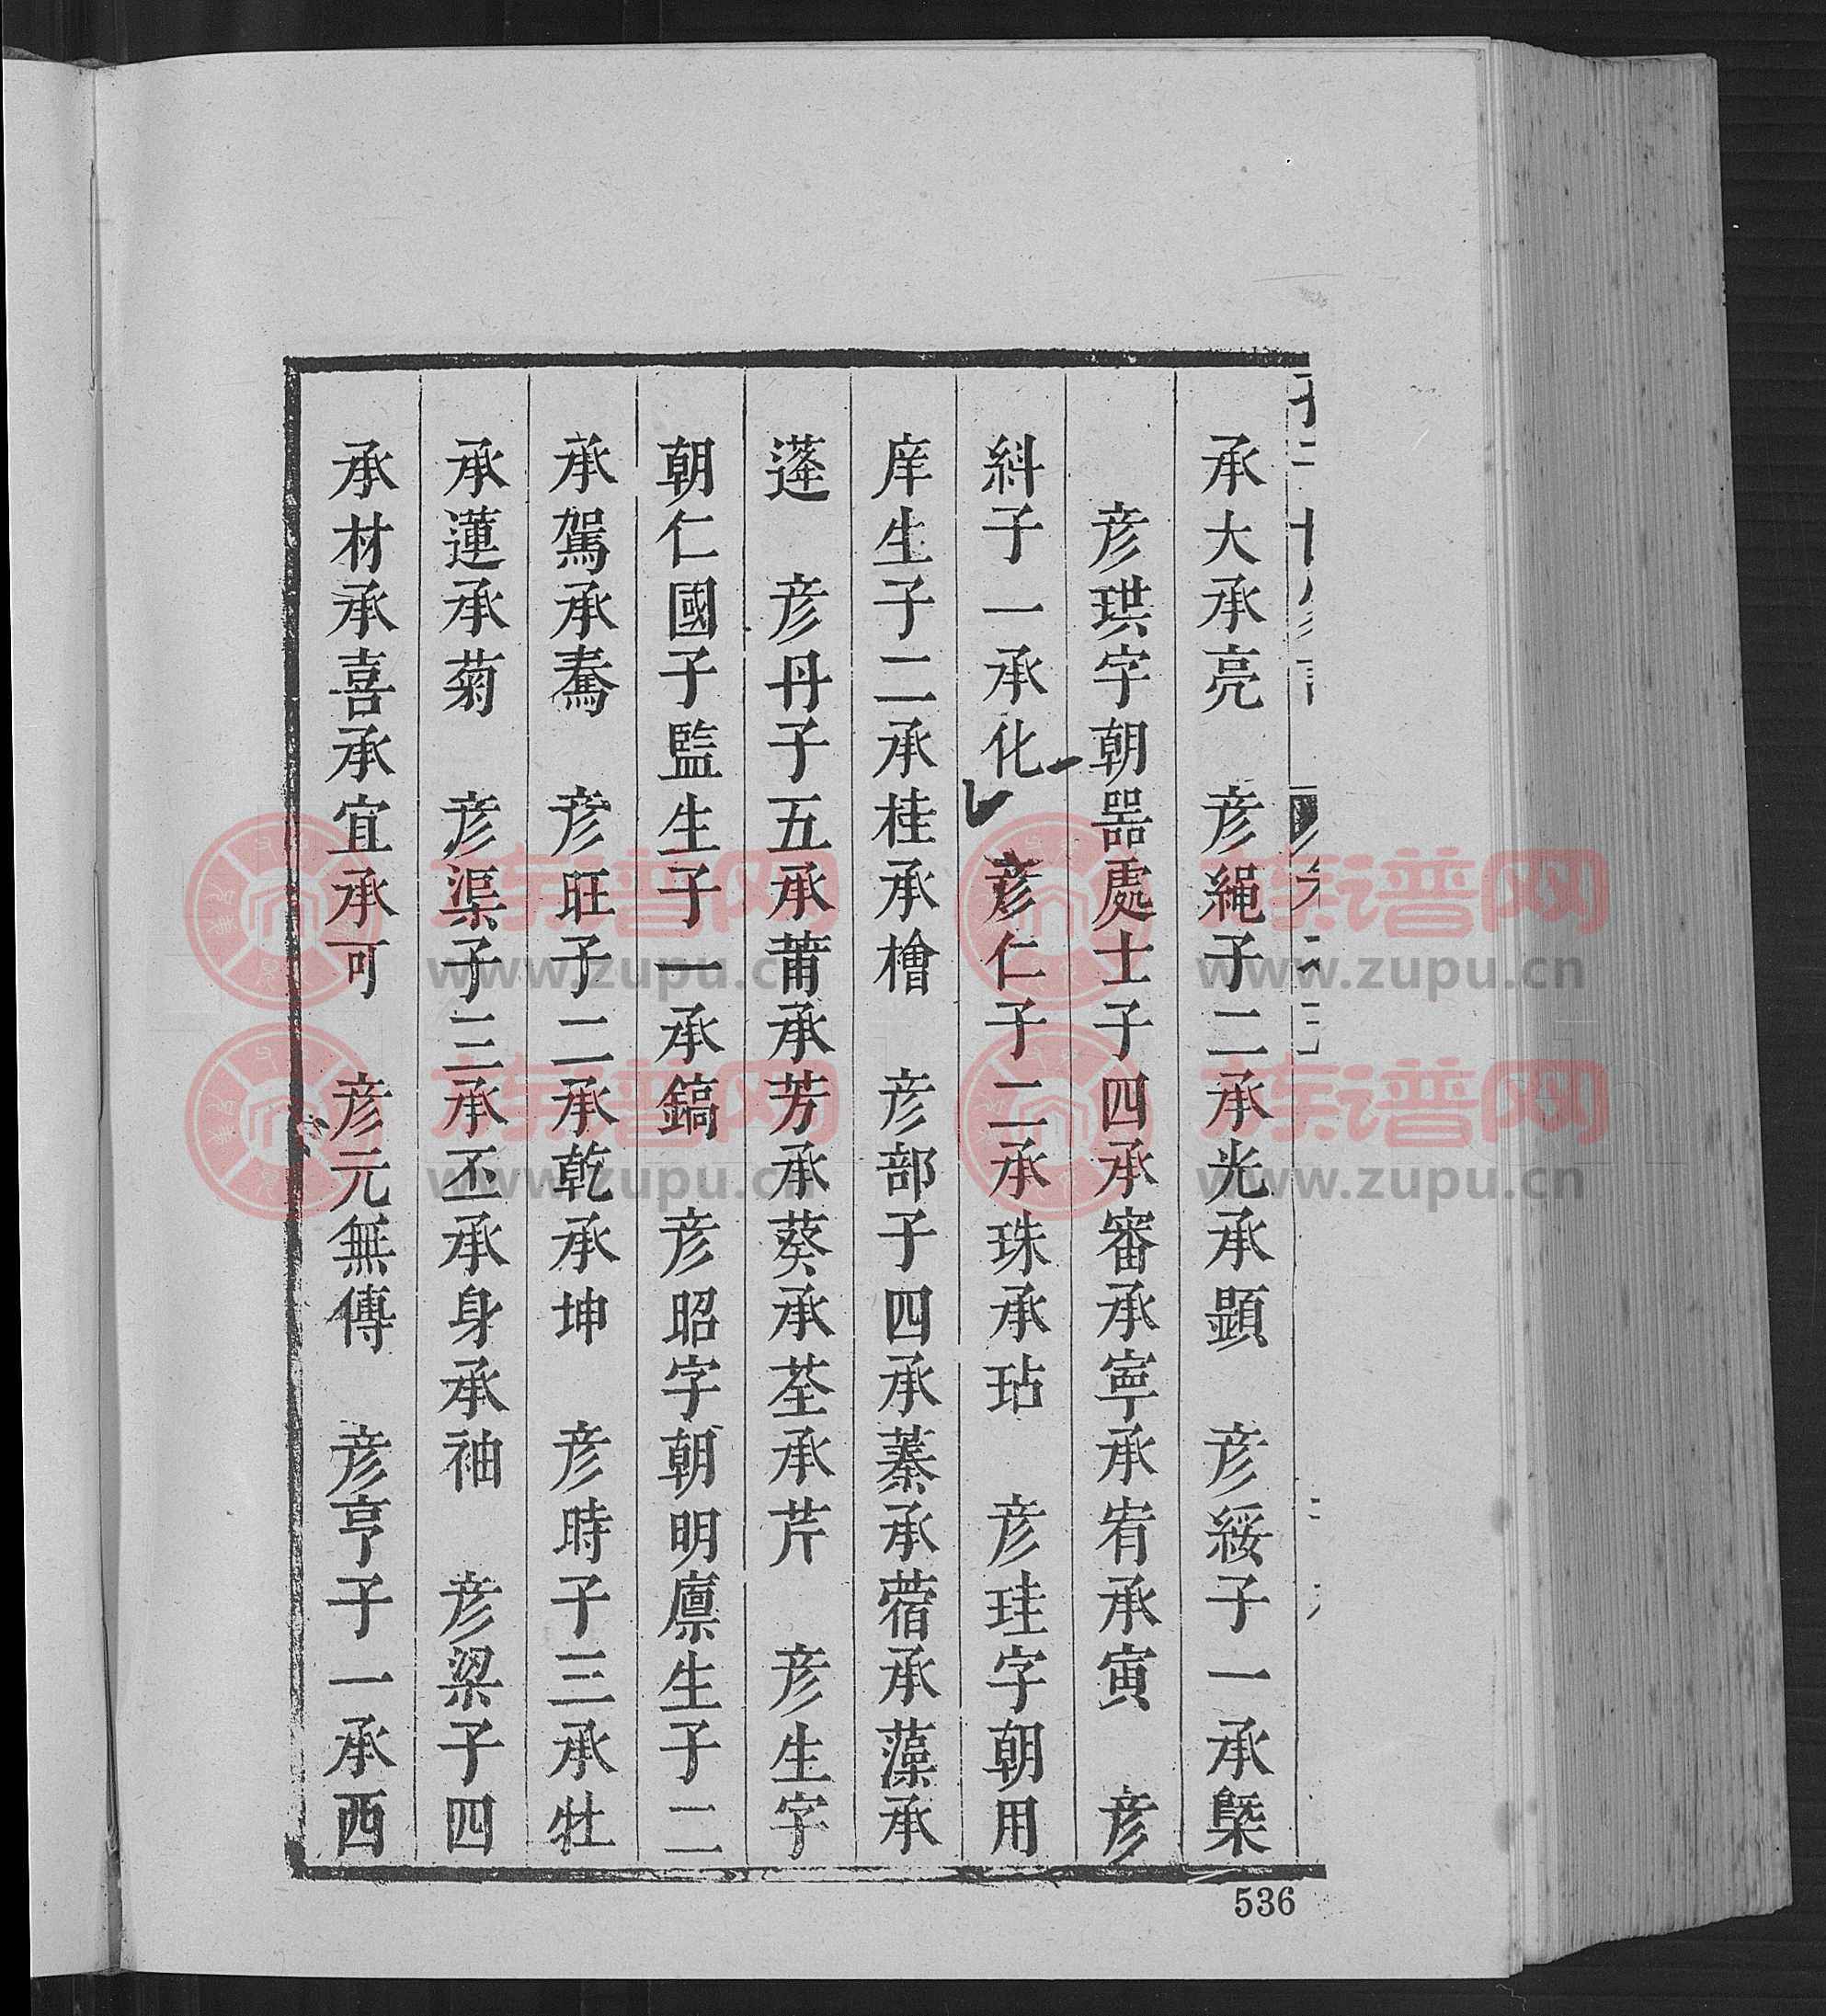 承大承亮　彦繩子二承光承顕　彦綏子一承槩
彦珙字朝器處士子四承審承寧承宥承寅　彦
紏子一承化　彦仁子二承珠承玷　彦珪字朝用
庠生子二承桂承檜　彦部子四承蓁承蓿承藻承
蓬　彦丹子五承莆承芳承葵承荃承芹　彦生字
朝仁國子監生子一承鎬　彦昭字朝明廪生子二
承駕承騫　彦旺子二承乾承坤　彦時子三承牡
承蓮承菊　彦渠子三承丕承身承袖　彦梁子四
承材承喜承宜承可　彦元無傳　彦亨子一承西
536
族谱网
www.zupu.cn
族谱网
www.zupu.cn
族谱网
www.zupu.cn
族谱网
www.zupu.cn